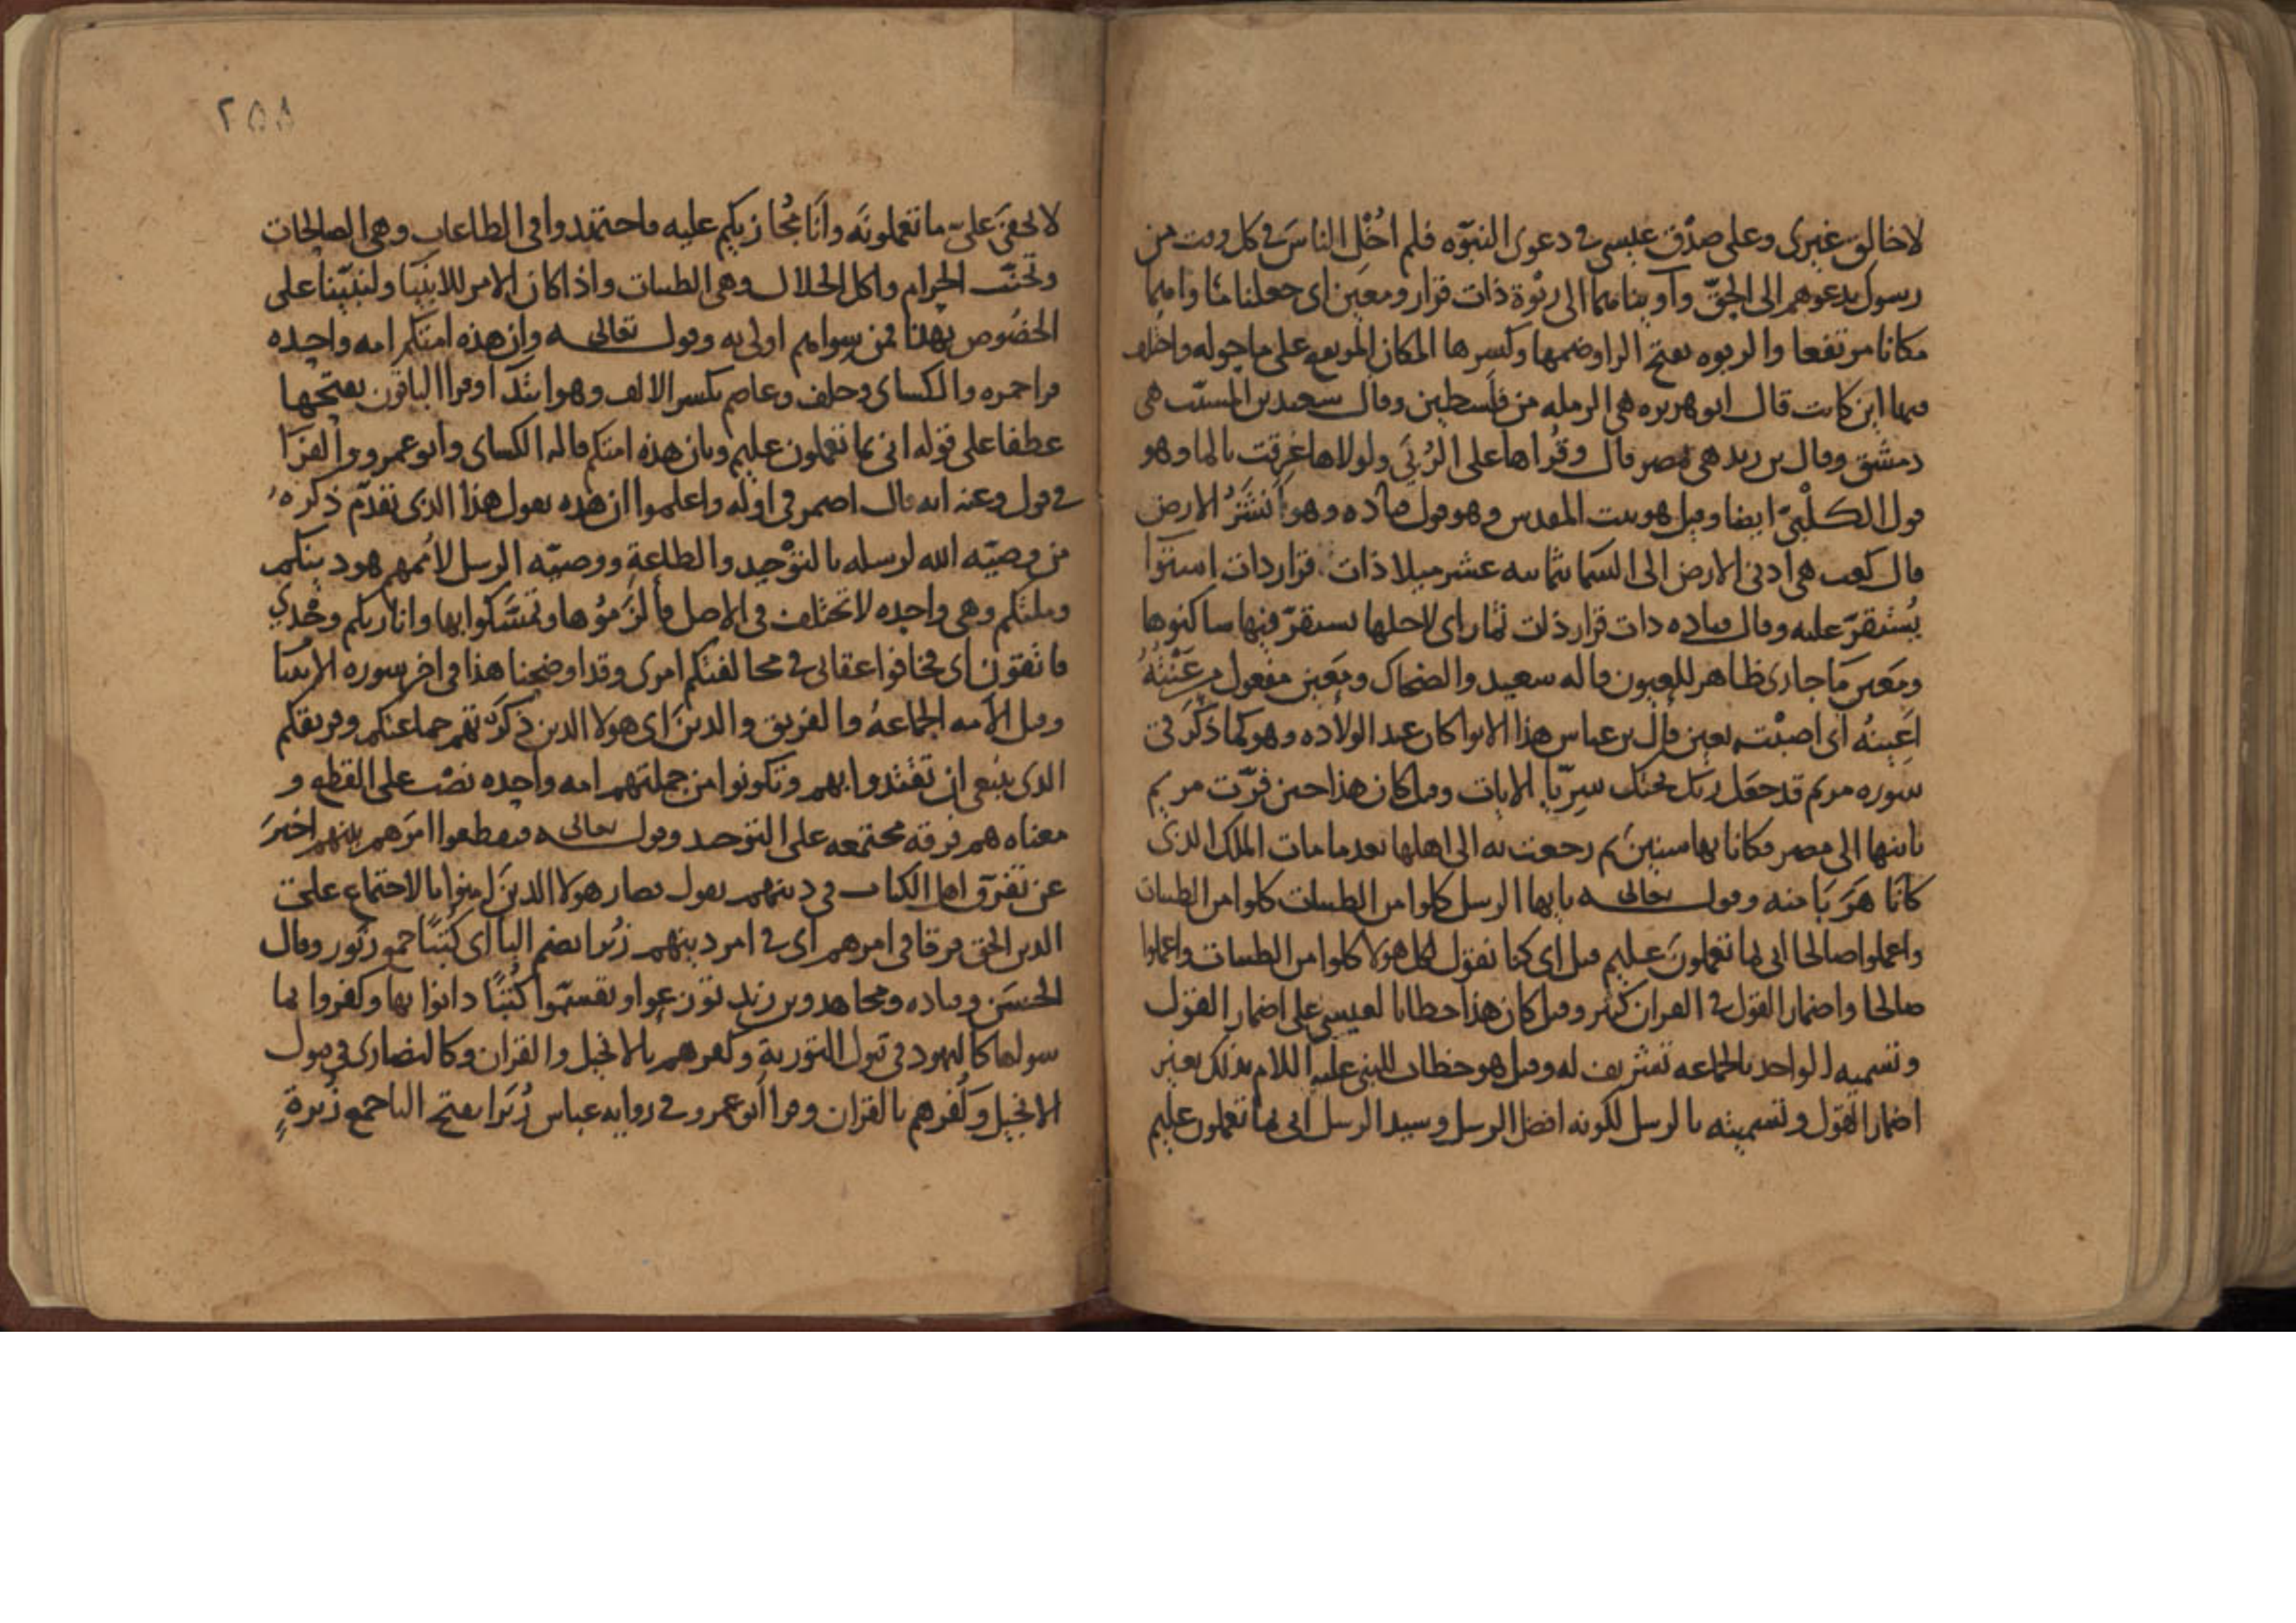 لا خالق غيرى وعلى صدْق عيسى فى دعوى النبوّه فلم اُخْلِ الناسَ فى كل وقت من
رسول يدعوهم الى الحقّ وآويناهما الى ربْوة ذات قرار ومعين اى جعلنا مأواهما
مكانا مرتفعا والربوه بفتح الرا وضمها وكسرها المكان المرتفع على ما حوله واختلف
فيها اين كانت قال ابو هريره هى الرمله من فلسطين وقال سعيد بن المسيّب هى
دمشق وقال بن زيد هى مصر قال وقُراها على الرُبَى ولولاها غرقت بالما وهو
قول الكلْبىّ ايضا وقيل هو بيت المقدس وهو قول قتاده وهو انْشَزُ الارض
قال كعب هى ادنى الارض الى السما بثمانيه عشر ميلا ذات قرار ذات استوآ
يُستقرّ عليه وقال قتاده ذات قرار ذات ثمار اى لاجلها يستقرّ فيها ساكنوها
ومَعين مَا جارى ظاهر للعيون قاله سعيد والضحاك ومَعين مفعول من عَنْتُهُ
اَعِينُهُ اى اصبْته بعين قال بن عباس هذا الايوا كان عند الولاده وهو كما ذكَرَ فى
سوره مريم قد جعَل ربّك تحتك سرِيّا الايات وقيل كان هذا حين فرّت مريم
بابنها الى مصر فكانا بها سنينَ ثم رجعت به الى اهلها بعد ما مات الملك الذى
كانا هَرَبَا منه وقولـــه تعالى يايها الرسل كلوا من الطيبات كلوا من الطيبات
واعملوا صالحا انى بما تعملونَ عليم قيل اى كنا نقول لكل هولا كلوا من الطيبات واعملوا
صالحا واضمار القول فى القران كثير وقيل كان هذا خطابا لعيسى على اضمار القول
وتسميه الواحد بالجماعه تشريف له وقيل هو خطاب للنبى عليه اللام بذلك بغير
اضمار القول وتسميته بالرسل لكونه افضل الرسل وسيد الرسل انى بما تعملون عليم
٢٥٨
لا يخفىَ علىّ ما تعملونَه وانَا مُجازيكم عليه فاجتهدوا فى الطاعات وهى الصالحات
وتجنّب الحرام واكل الحلال وهى الطيبات واذا كان الامر للانبيا ولنبيّنا على
الخصُوص بهذا فمن سواهم اولى به وقولـــه تعالى وان هذه امتكم امه واحده
قرا حمزه والكساى وخلف وعاصم بكسر الالف وهو ابتدآ وقرا الباقون بفتحها
عطفا على قوله انى بما تعملون عليم وبان هذه امتكم قاله الكساى وابو عمرو والفرّا
فى قول وعنه انه قال اضمر فى اوله واعلموا ان هذه يقول هذا الذى تقدّم ذكره
من وصيّه الله لرسله بالتوْحيد والطاعةِ ووصيّه الرسل لاُممهم هو دينكم
وملتكم وهى واحده لا تختلف فى الاصل فألزَموُها وتمسّكوا بها وانا ربكم وحْدى
فاتقون اى فخافوا عقابى فى مخالفتكم امرى وقد اوضحنا هذا فى اخر سوره الانبيا
وقيل الأمه الجماعهُ والفريق والدينَ اى هولا الذين ذكرتهم جماعتكم وفريقكم
الذى ينبغى ان تقتدوا بهم وتكونوا من جملتهم امه واحده نصْب على القطع و
معناه هم فرقه مجتمعه على التوحيد وقولـــه تعالى فتقطعوا امرَهم بينهم اخبَرَ
عن تفرّق اهل الكتاب فى دينهم يقول فصار هولا الذينَ امِروا بالاجتماع على
الدين الحق فرقا فى امرهم اى فى امر دينهم زبُرا بضم البا اى كُتبًا جمع زبور وقال
الحسَن وقتاده ومجاهد وبن زيد توزعوا وتقسّموا كُتبًا دانوا بها وكفروا بما
سواها كاليهود فى قبول التورية وكفرهم بالانجيل والقران وكالنصارى فى قبول
الانجيل وكُفرهم بالقران وقرا ابو عمرو فى روايه عباس زُبَرا بفتح البا جمع زُبرةٍ